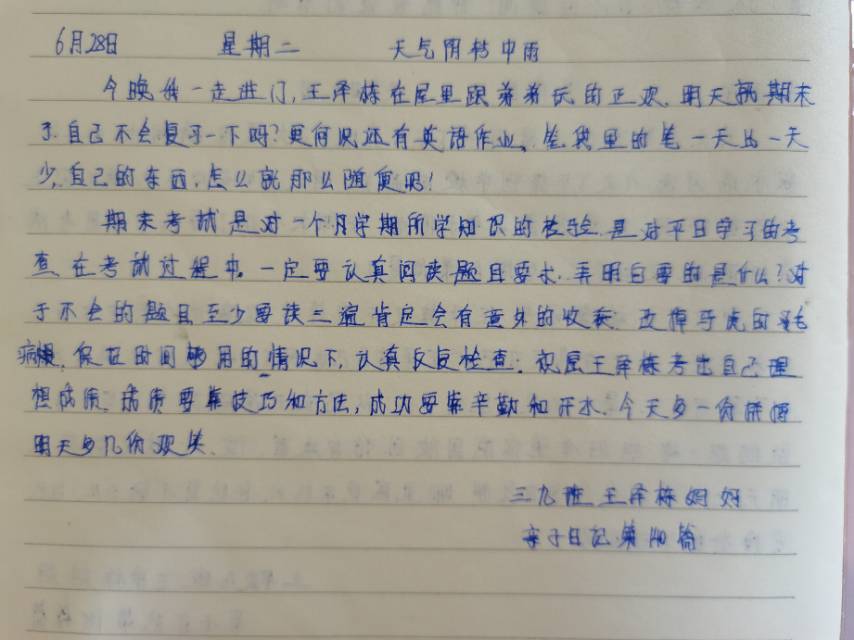 6月28日 星期二 天气阴转中雨
今晚我一走进门,王泽栋在屋里跟弟弟玩的正欢.明天就期末
了.自己不会复习一下吗?更何况还有英语作业、笔袋里的笔一天比一天
少.自己的东西.怎么就那么随便呢!
期末考试是对一个月学期所学知识的检验.是对平日学习的考
查.在考试过程中.一定要认真阅读题目要求.弄明白要的是什么?对
于不会的题目至少要读三遍肯定会有意外的收获.改掉马虎的毛
病,保证时间够用的情况下,认真反反检查.祝愿王泽栋考出自己理
想成绩.成绩要靠技巧和方法,成功要靠辛勤和汗水.今天多一份拼搏
明天多几份欢笑.
三九班王泽栋妈妈
亲子日记第 篇